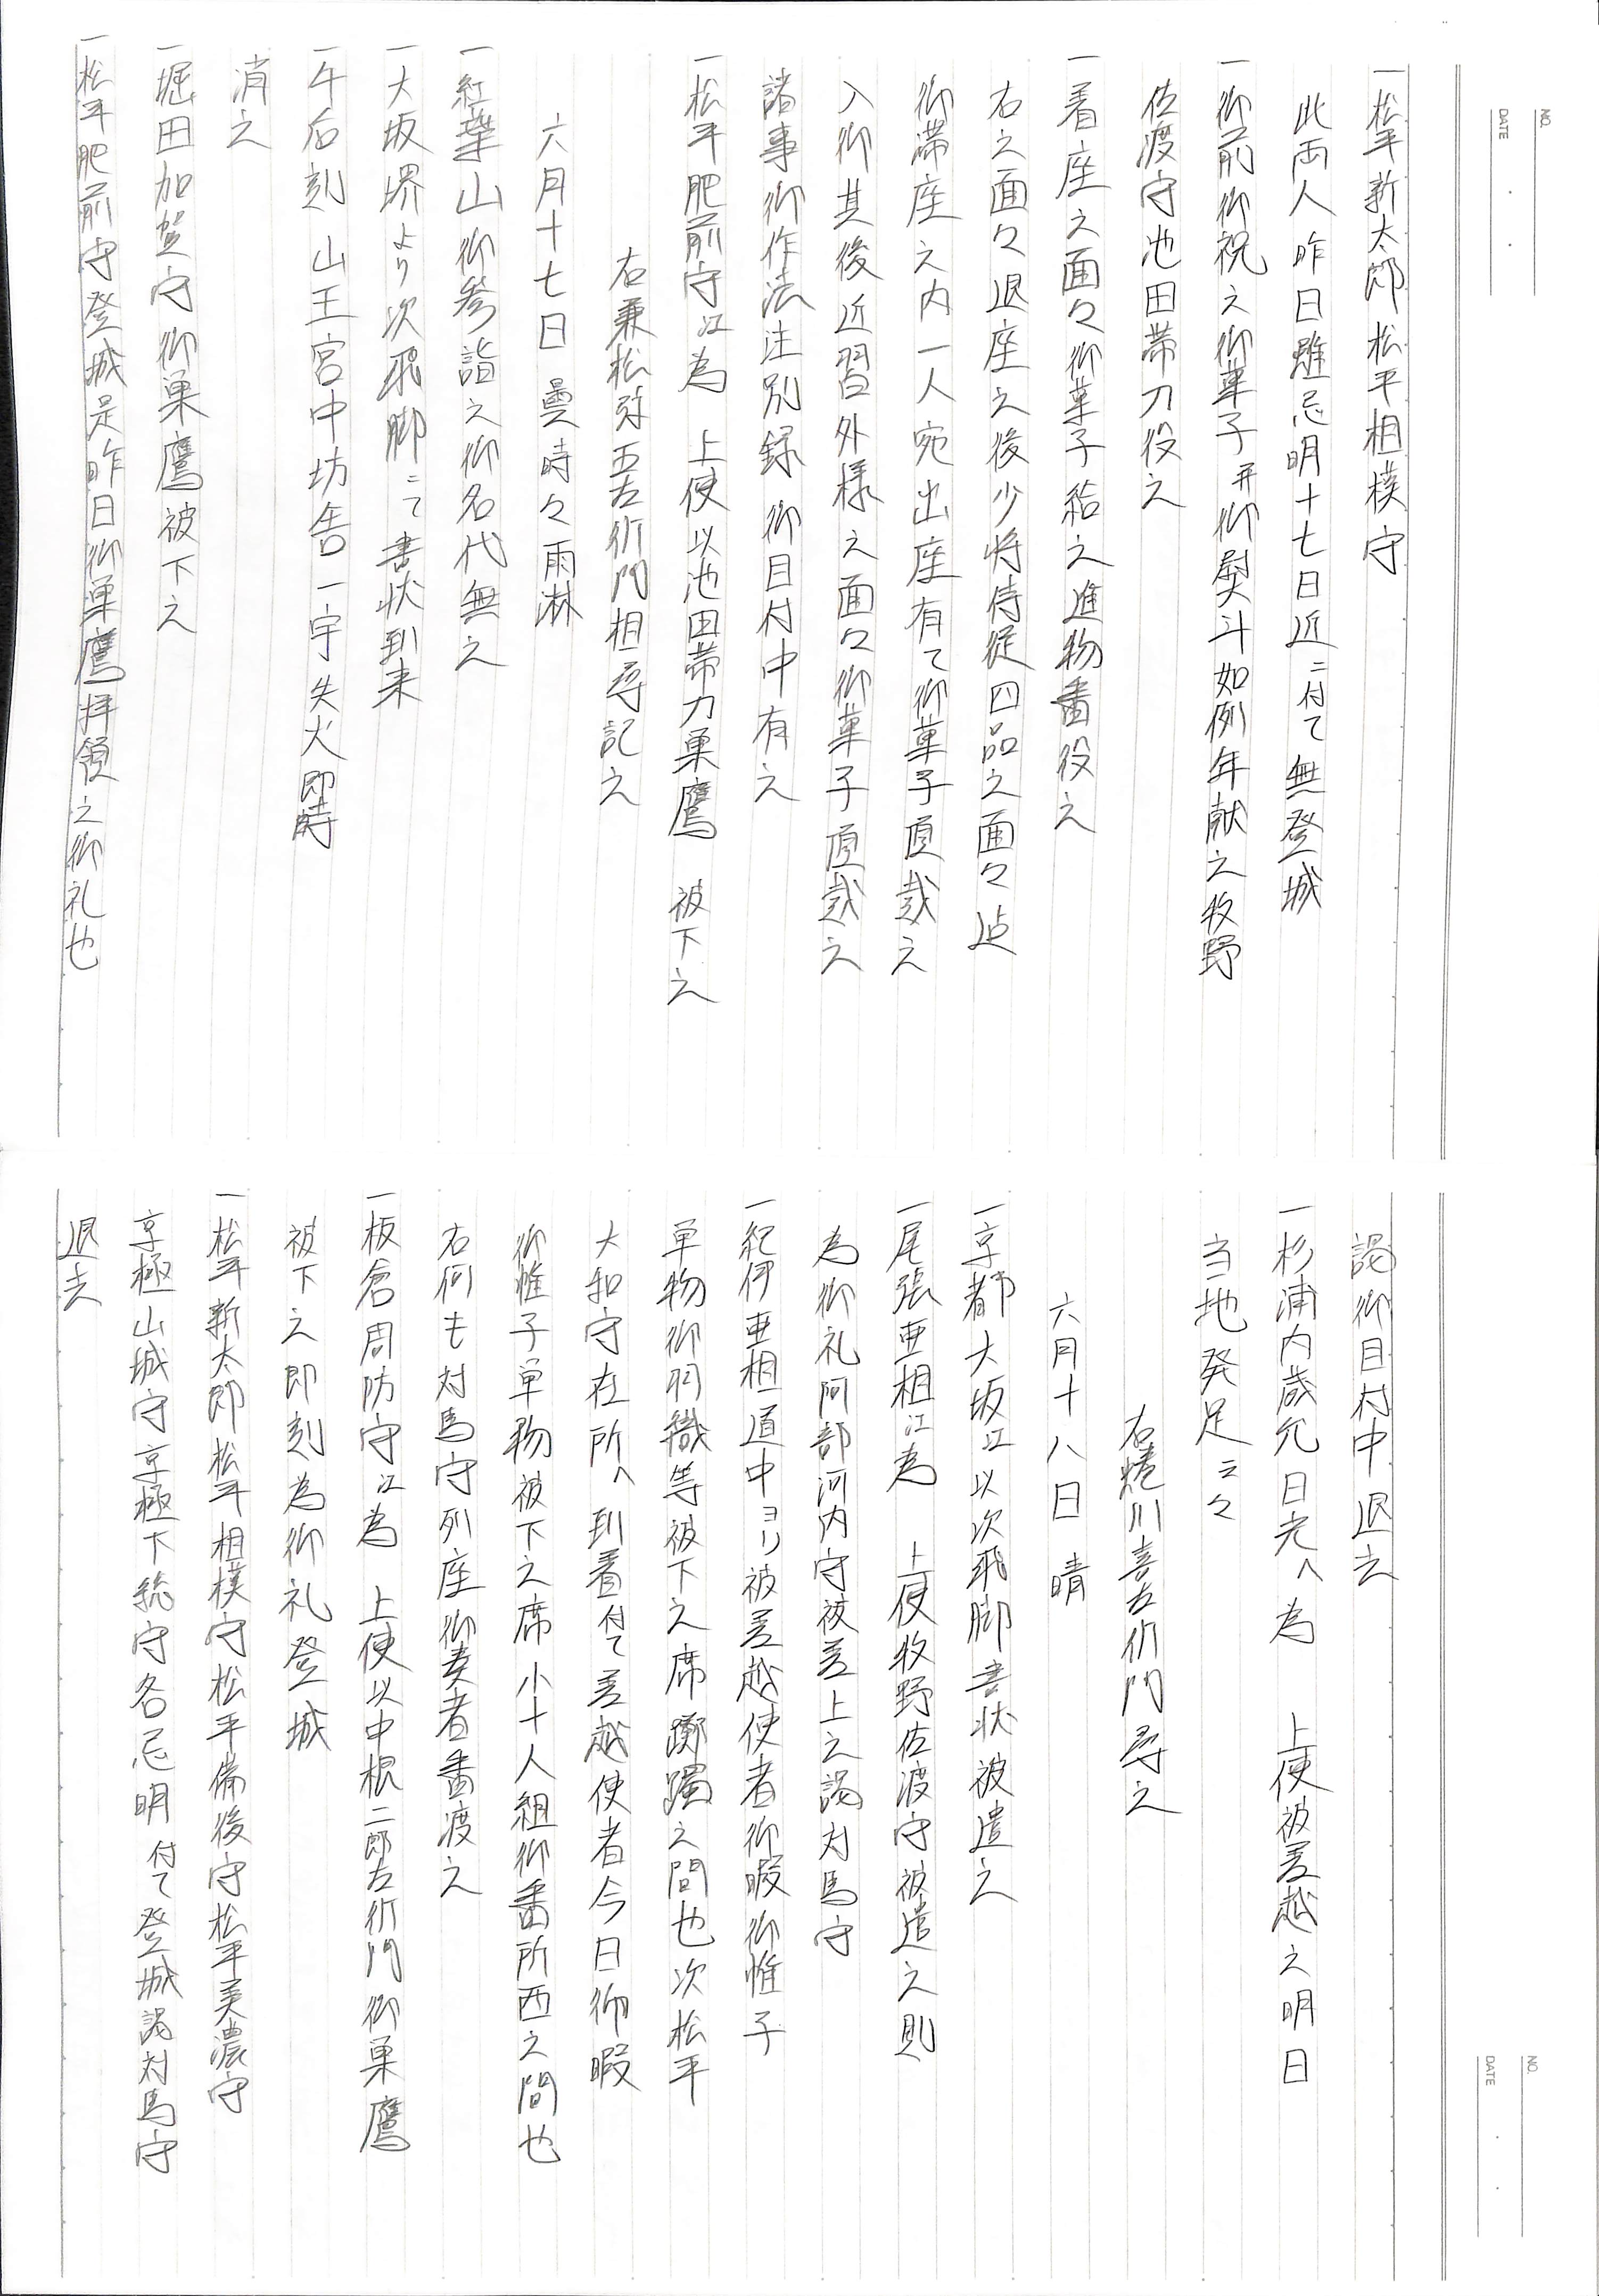 NO.
DATE
一松平新太郎 松平相模守
此両人昨日雖忌明十七日近ニ付て無登城
一御前御祝之御菓子并御熨斗如例年献之牧野
佐渡守池田帯刀役之
一着座之面々御菓子給之進物番役之
右之面々退座之後少将侍従四品之面々迠
御滞座之内一人宛出座有て御菓子頂戴之
入御其後近習外様之面々御菓子頂戴之
諸事御作法注別録 御目付中有之
一松平肥前守江為 上使以池田帯刀巣鷹 被下之
右兼松弥五左衛門相尋記之
六月十七日 曇時々雨淋
一紅葉山御参詣之御名代無之
一大坂堺より次飛脚ニて書状到来
一午后刻 山王宮中坊舎一宇失火即時
消之
一堀田加賀守御巣鷹被下之
一松平肥前守登城是昨日御巣鷹拝領之御礼也
NO.
DATE
謁御目付中退去
一杉浦内蔵允日光へ為 上使被差越之明日
当地発足云々
右蜷川喜左衛門尋之
六月十八日 晴
一京都大坂江以次飛脚書状被遣之
一尾張亜相江為 上使牧野佐渡守被遣之則
為御礼阿部河内守被差上之謁対馬守
一紀伊亜相道中ヨリ被差越使者御暇御惟子
単物御羽織等被下之席躑躅之間也次松平
大和守在所へ到着付て差越使者今日御暇
御惟子単物被下之席小十人組御番所西之間也
右何も対馬守列座御奏者番渡之
一板倉周防守江為 上使以中根二郎左衛門御巣鷹
被下之即刻為御礼登城
一松平新太郎松平相模守松平備後守松平美濃守
京極山城守京極下総守各忌明付て登城謁対馬守
退去